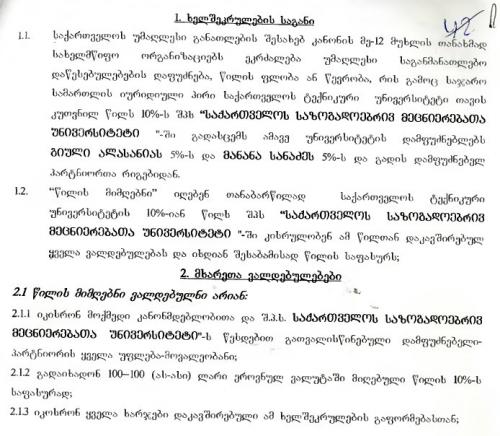 1. ხელშეკრულების საგანი
1.1. საქართველოს უმაღლესი განათლების შესახებ კანონის მე-12 მუხლის თანახმად
სახელმწიფო ორგანიზაციებს ეკრძალება უმაღლესი საგანმანათლებლო
დაწესებულებების დაფუძნება, წილის ფლობა ან წევრობა, რის გამოც საჯარო
სამართლის იურიდიული პირი საქართველოს ტექნიკური უნივერსიტეტი თავის
კუთვნილ წილს 10%-ს შპს "საქართველოს საზოგადოებრივ მეცნიერებათა
უნივერსიტეტი "-ში გადასცემს ამავე უნივერსიტეტის დამფუძნებლებს
გიული ალასანიას 5%-ს და მანანა სანაძეს 5%-ს და გადის დამფუძნებელ
პარტნიორთა რიგებიდან.
1.2. "წილის მიმღებნი" იღებენ თანაბარწილად საქართველოს ტექნიკური
უნივერსიტეტის 10%-იან წილს შპს "საქართველოს საზოგადოებრივ
მეცნიერებათა უნივერსიტეტი "-ში კისრულობენ ამ წილთან დაკავშირებულ
ყველა ვალდებულებას და იხდიან შესაბამისად წილის საფასურს;
2. მხარეთა ვალდებულებები
2.1 წილის მიმღებნი ვალდებულნი არიან:
2.1.1 იკისრონ მოქმედი კანონმდებლობითა და შ.პ.ს. საქართველოს საზოგადოებრივ
მეცნიერებათა უნივერსიტეტი"-ს წესდებით გათვალისწინებული დამფუძნებელი-
პარტნიორის ყველა უფლება-მოვალეობანი;
2.1.2 გადაიხადონ 100–100 (ას-ასი) ლარი ეროვნულ ვალუტაში მიღებული წილის 10%-ს
საფასურად;
2.1.3 იკისრონ ყველა ხარჯები დაკავშირებული ამ ხელშეკრულების გაფორმებასთან;